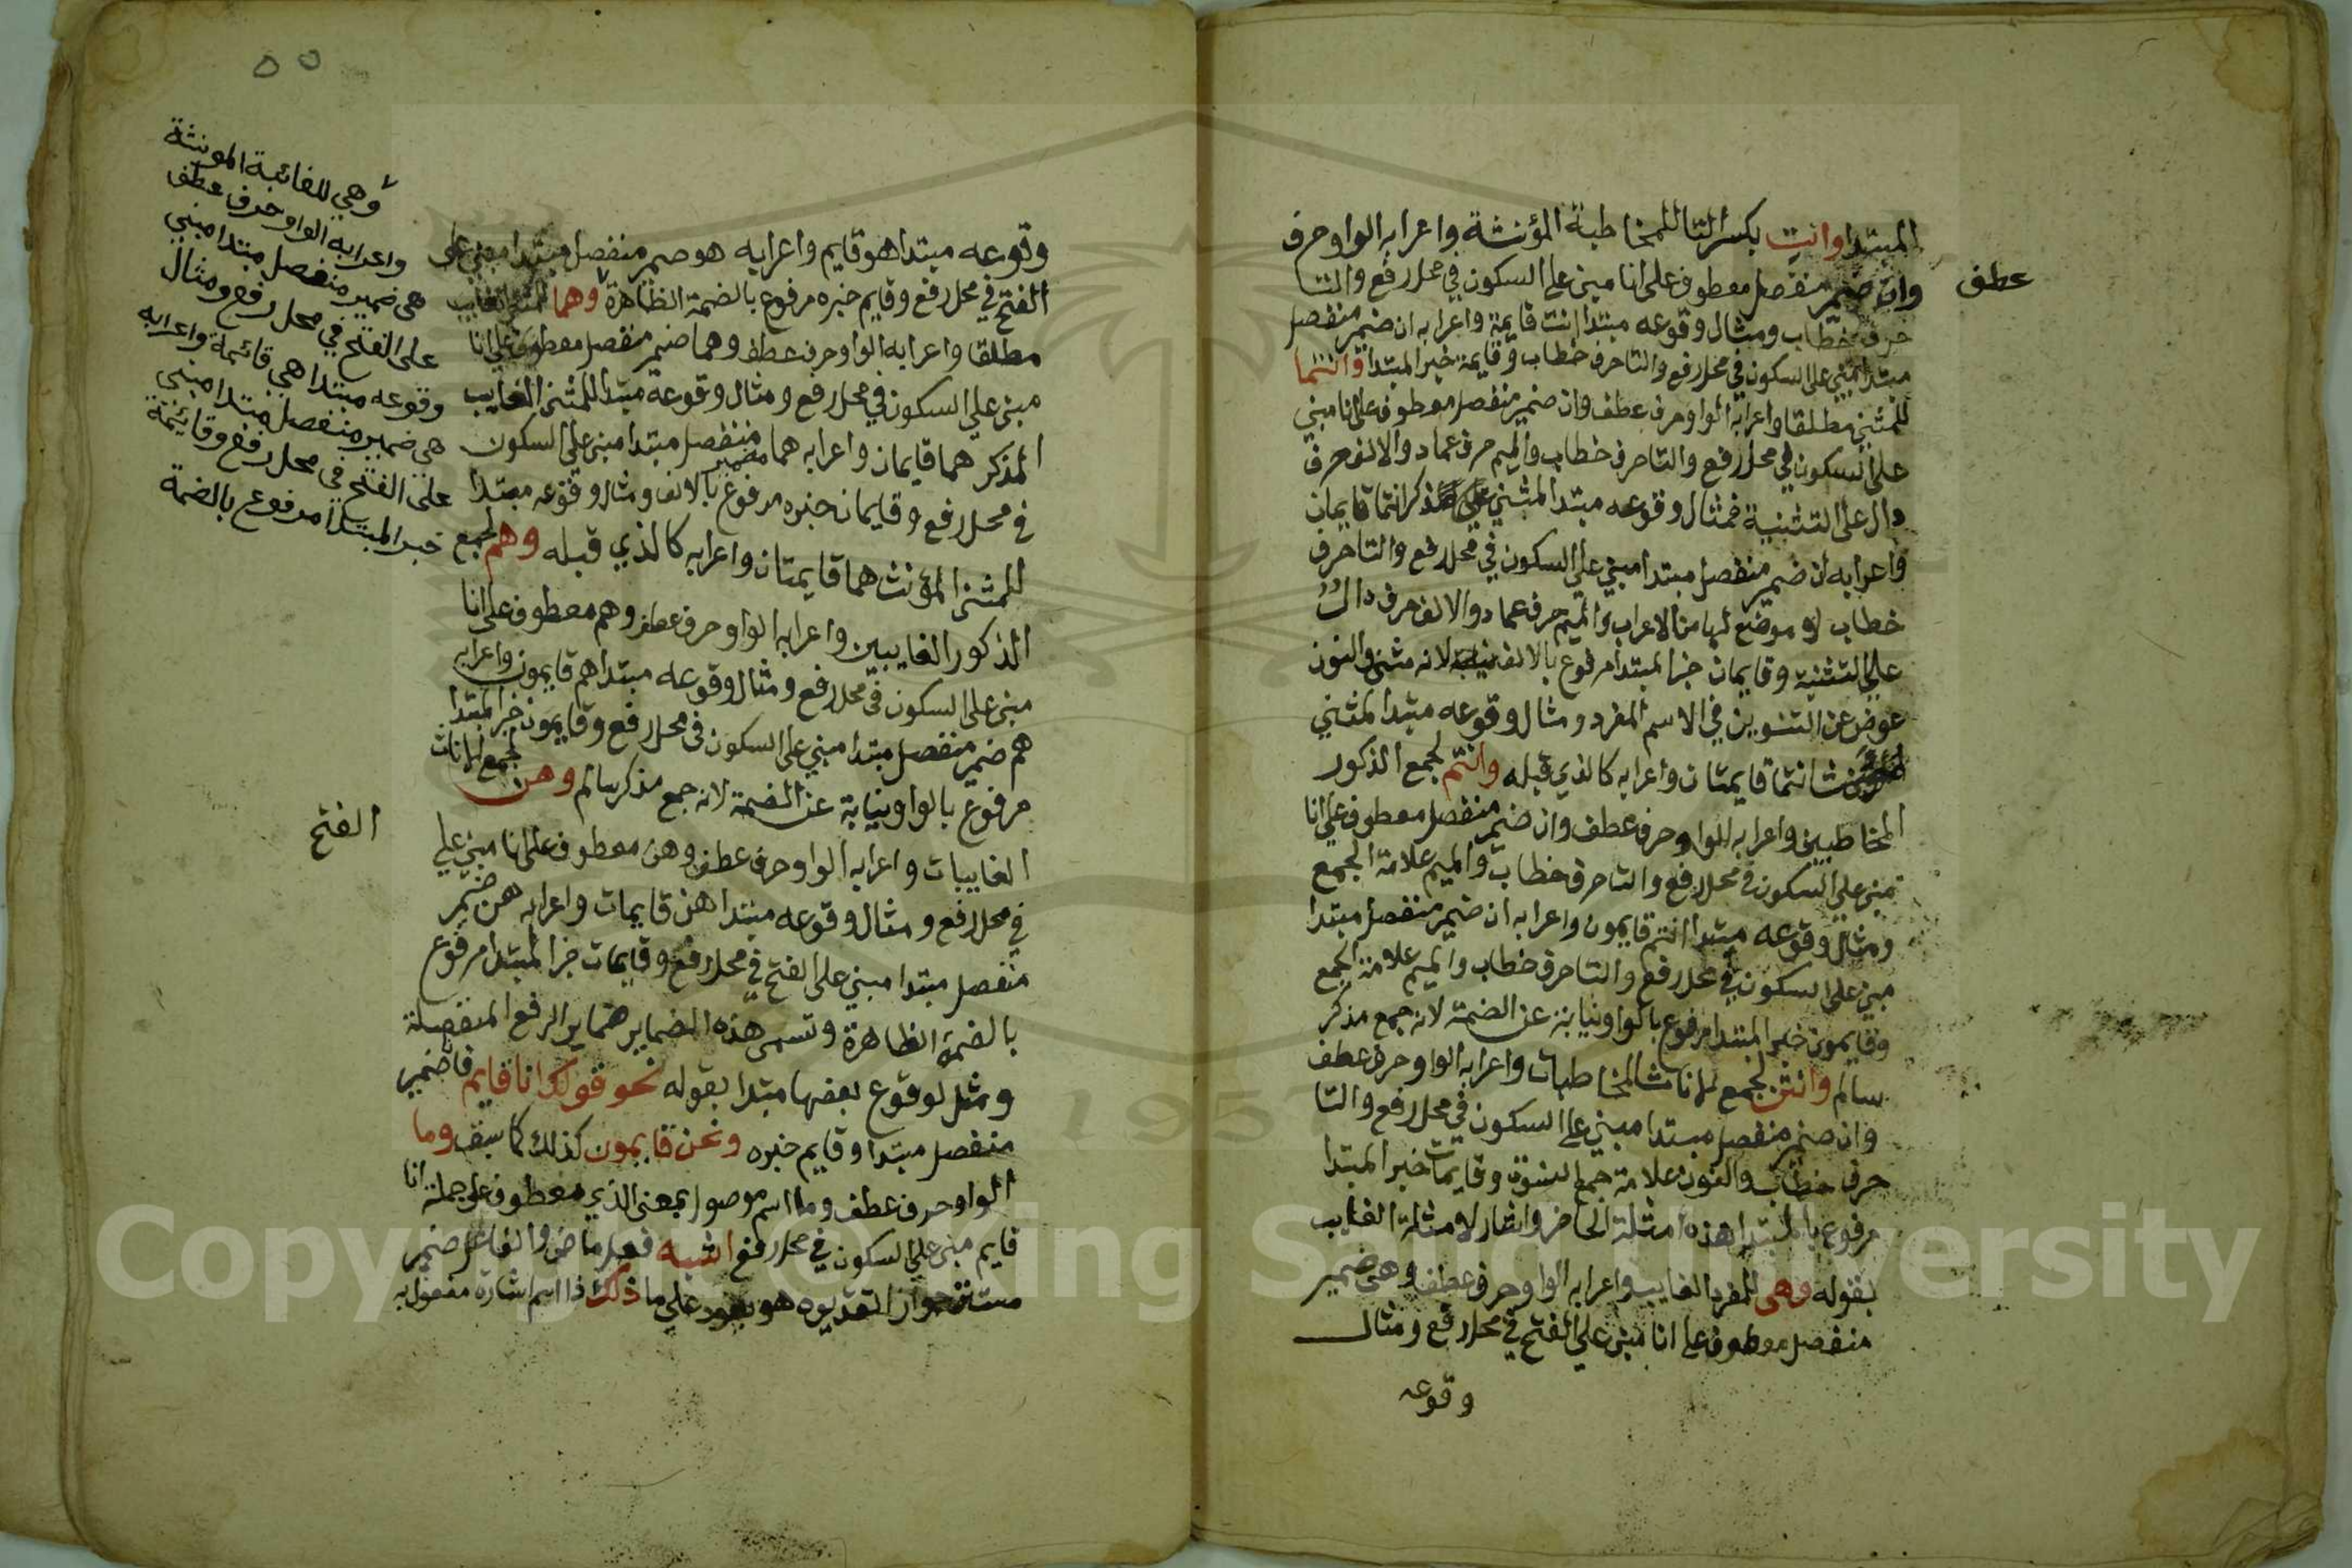 المبتدا وانتِ بكسر التا للمخاطبة المؤنثة واعرابه الواو حرف
عطف
وان ضمير منفصل معطوف على انا مبني على السكون في محل رفع والتا
حرف خطاب ومثال وقوعه مبتدا انت قايمة واعرابه ان ضمير منفصل
مبتدا مبني على السكون في محل رفع والتا حرف خطاب وقايمة خبر المبتدا وانتما
للمثنى مطلقا واعرابه الواو حرف عطف وان ضمير منفصل معطوف على انا مبني
على السكون في محل رفع والتا حرف خطاب والميم حرف عماد والالف حرف
دال على التثنية فمثال وقوعه مبتدا لمثنى مذكر انتما قايمان
واعرابه ان ضمير منفصل مبتدا مبني على السكون في محل رفع والتا حرف
خطاب لا موضع لها من الاعراب والميم حرف عماد والالف حرف دال
على التثنية وقايمان خبر المبتدا مرفوع بالالف نيابة لانه مثنى والنون
عوض عن التنوين في الاسم المفرد ومثال وقوعه مبتدا لمثنى
مؤنث انتما قايمتان واعرابه كالذي قبله وانتم لجمع الذكور
المخاطبين واعرابه الواو حرف عطف وان ضمير منفصل معطوف على انا
مبني على السكون في محل رفع والتا حرف خطاب والميم علامة الجمع
ومثال وقوعه مبتدا انتم قايمون واعرابه ان ضمير منفصل مبتدا
مبني على السكون في محل رفع والتا حرف خطاب والميم علامة الجمع
وقايمون خبر المبتدا مرفوع بالواو نيابة عن الضمة لانه جمع مذكر
سالم وانتن لجمع الاناث المخاطبات واعرابه الواو حرف عطف
وان ضمير منفصل مبتدا مبني على السكون في محل رفع والتا
حرف خطاب والنون علامة جمع النسوة وقايمات خبر المبتدا
مرفوع بالمبتدا هذه امثلة الحاضر واشار لامثلة الغايب
بقوله وهي للمفرد الغايب واعرابه الواو حرف عطف وهي ضمير
منفصل معطوف على انا مبني على الفتح في محل رفع ومثال
وقوعه
٥٥
وقوعه مبتدا هو قايم واعرابه هو ضمير منفصل مبتدا مبني على
الفتح في محل رفع وقايم خبره مرفوع بالضمة الظاهرة وهما للمثنى الغايب
مطلقا واعرابه الواو حرف عطف وهما ضمير منفصل معطوف على انا
مبني على السكون في محل رفع ومثال وقوعه مبتدا للمثنى الغايب
المذكر هما قايمان واعرابه هما ضمير منفصل مبتدا مبني على السكون
في محل رفع وقايمان خبره مرفوع بالالف ومثال وقوعه مبتدا
للمثنى المؤنث هما قايمتان واعرابه كالذي قبله وهم لجمع
الذكور الغايبين واعرابه الواو حرف عطف وهم معطوف على انا
مبني على السكون في محل رفع ومثال وقوعه مبتدا هم قايمون واعرابه
هم ضمير منفصل مبتدا مبني على السكون في محل رفع وقايمون خبر المبتدا
مرفوع بالواو نيابة عن الضمة لانه جمع مذكر سالم وهن لجمع الاناث
الغايبات واعرابه الواو حرف عطف وهن معطوف على انا مبني على
الفتح
في محل رفع ومثال وقوعه مبتدا هن قايمات واعرابه هن ضمير
منفصل مبتدا مبني على الفتح في محل رفع وقايمات خبر المبتدا مرفوع
بالضمة الظاهرة وتسمى هذه الضماير ضماير الرفع المنفصلة
ومثل لوقوع بعضها مبتدا بقوله نحو قولك انا قايم فانا ضمير
منفصل مبتدا وقايم خبره ونحن قايمون كذلك كما سبق وما
الواو حرف عطف وما اسم موصول بمعنى الذي معطوف على جملة انا
قايم مبني على السكون في محل رفع اشبه فعل ماض والفاعل ضمير
مستتر جوازا تقديره هو يعود على ما ذلك ذا اسم اشارة مفعول به
وهي للغائبة المونثة
واعرابه الواو حرف عطف
هي ضمير منفصل مبتدا مبني
على الفتح في محل رفع ومثال
وقوعه مبتدا هي قائمة واعرابه
هي ضمير منفصل مبتدا مبني
على الفتح في محل رفع وقايمة
خبر المبتدا مرفوع بالضمة
Copyright © King Saud University
1957